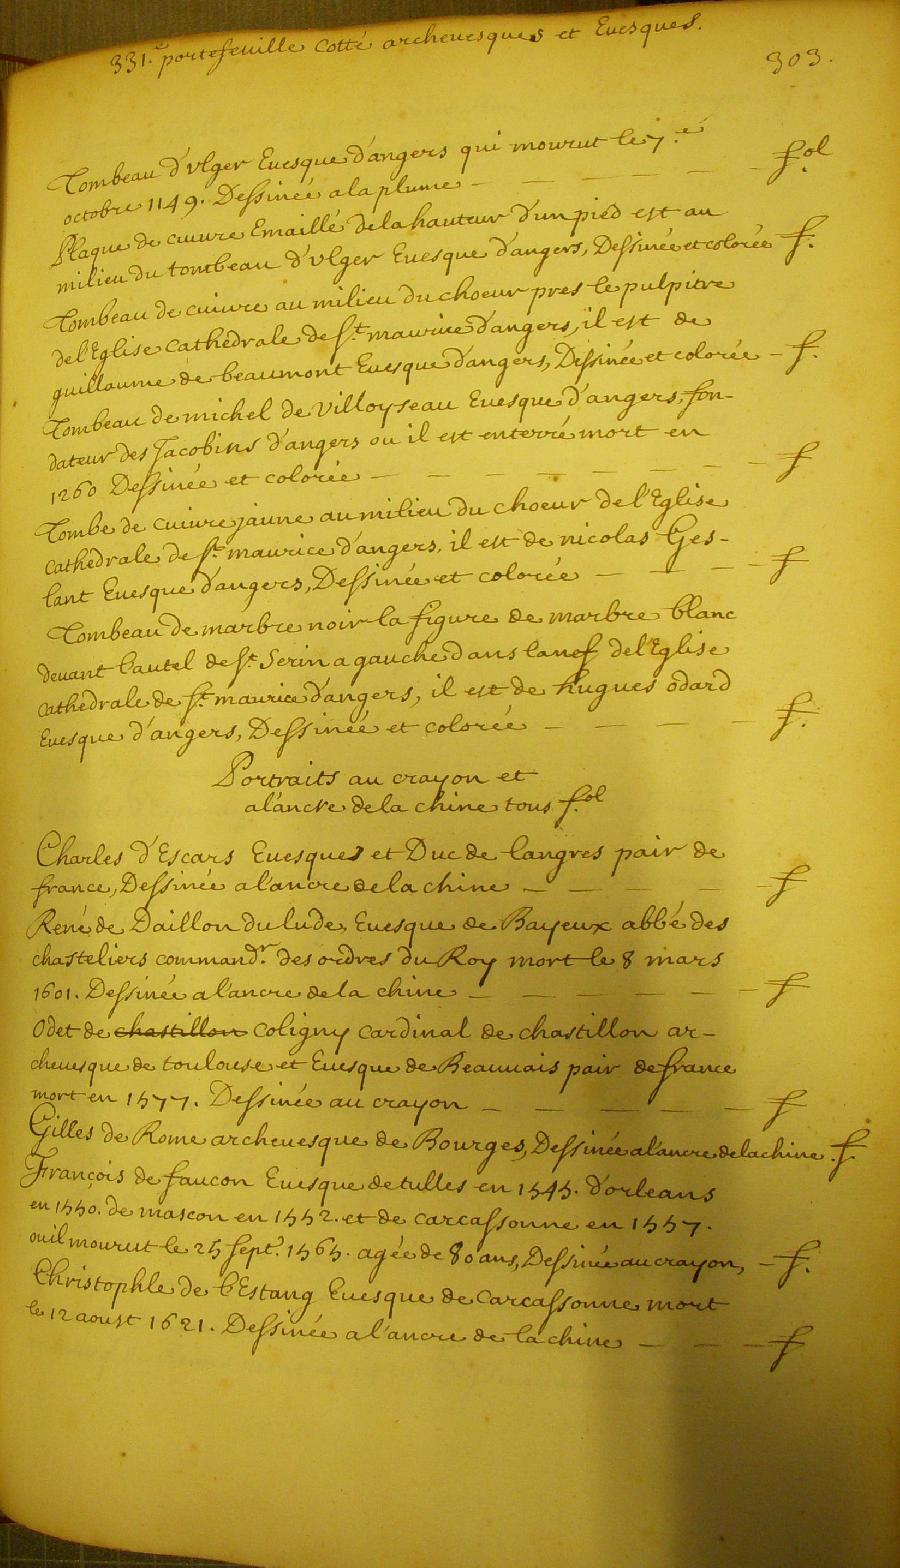 331.e portefeuille cotté archevesques et Evesques.
303.
Tombeau d'vlger Evesque d'angers qui mourut le 7.e
octobre 1149. Dessinée a la plume — — — — — fol.
Plaque de cuivre Emaillé de la hauteur d'un pied est au
milieu du tombeau d'vlger Evesque d'angers, Dessinée et colorée f.
Tombeau de cuivre au milieu du choeur pres le pulpitre
de l'Eglise cathedrale de st. maurice d'angers, il est de
guillaume de beaumont Evesque d'angers, Dessinée et colorée - f.
Tombeau de michel de Villoyseau Evesque d'angers, fon-
dateur des Jacobins d'angers ou il est enterré mort en
1260 Dessinée et colorée — — — — — — — f
Tombe de cuivre jaune au milieu du choeur de l'Eglise
cathedrale de st. maurice d'angers, il est de nicolas Ges-
lant Evesque d'angers, Dessinée et colorée — — — f
Tombeau de marbre noir la figure de marbre blanc
devant l'autel de st. Serin a gauche dans la nef de l'Eglise
cathedrale de st. maurice d'angers, il est de hugues odard
Evesque d'angers, Dessinée et colorée — — — — f.
Portraits au crayon et
a l'ancre de la chine tous fol.
Charles d'Escars Evesque et Duc de langres pair de
france, Dessinée a l'ancre de la chine — — — — f
René de Daillon du lude, Evesque de Bayeux abbé des
chasteliers command.r des ordres du Roy mort le 8 mars
1601. Dessinée a l'ancre de la chine — — — — — f
Odet de chastillon coligny cardinal de chastillon ar-
chevesque de toulouse et Evesque de Beauvais pair de france
mort en 1577. Dessinée au crayon — — — — — f
Gilles de Rome archevesque de Bourges, Dessinée a l'ancre de la chine. f.
François de faucon Evesque de tulles en 1545. d'orleans
en 1550. de mascon en 1552. et de carcassonne en 1557.
ou il mourut le 25 sept.e 1565. agée de 80 ans, Dessinée au crayon, - f.
Christophle de l'Estang Evesque de Carcassonne mort
le 12 aoust 1621. Dessinée a l'ancre de la chine — — — f